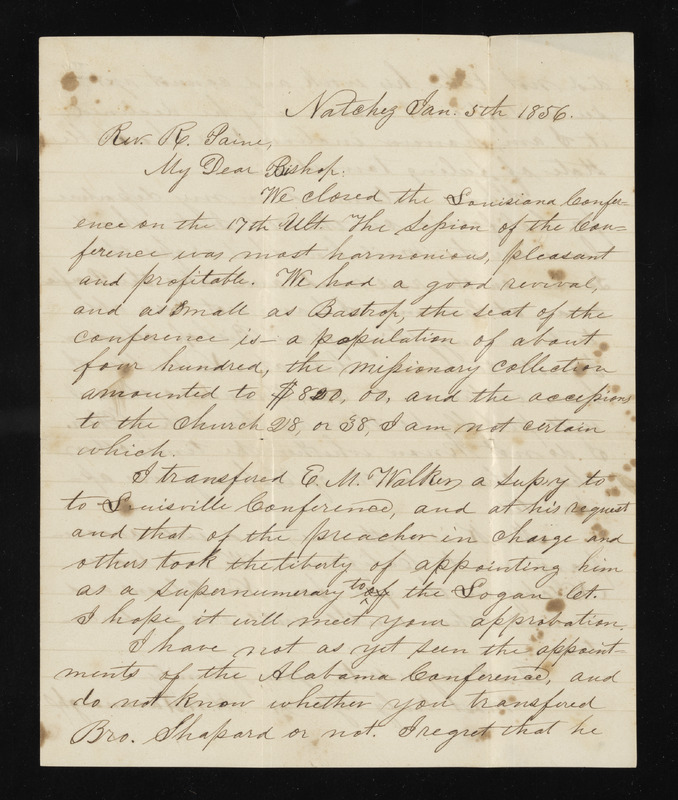 Natchez Jan. 5th 1856.
Rev. R. Paine,
My Dear Bishop:
We closed the Louisiana Confer-
ence on the 17th Ult. The Session of the Con-
ference was most harmonious, pleasant
and profitable. We had a good revival,
and as small as Bastrop, the seat of the
conference is - a population of about
four hundred, the missionary collection
amounted to $800,00, and the accessions
to the church 28, or 38, I am not certain
which.
I transfered E. M. Walker, a supy to
to Louisville Conference, and at his request
and that of the preacher in charge and
others took the liberty of appointing him
as a supernumerary to the Logan Ct.
I hope it will meet your approbation.
I have not as yet seen the appoint-
ments of the Alabama Conference, and
do not know whether you transfered
Bro. Shapard or not. I regret that he